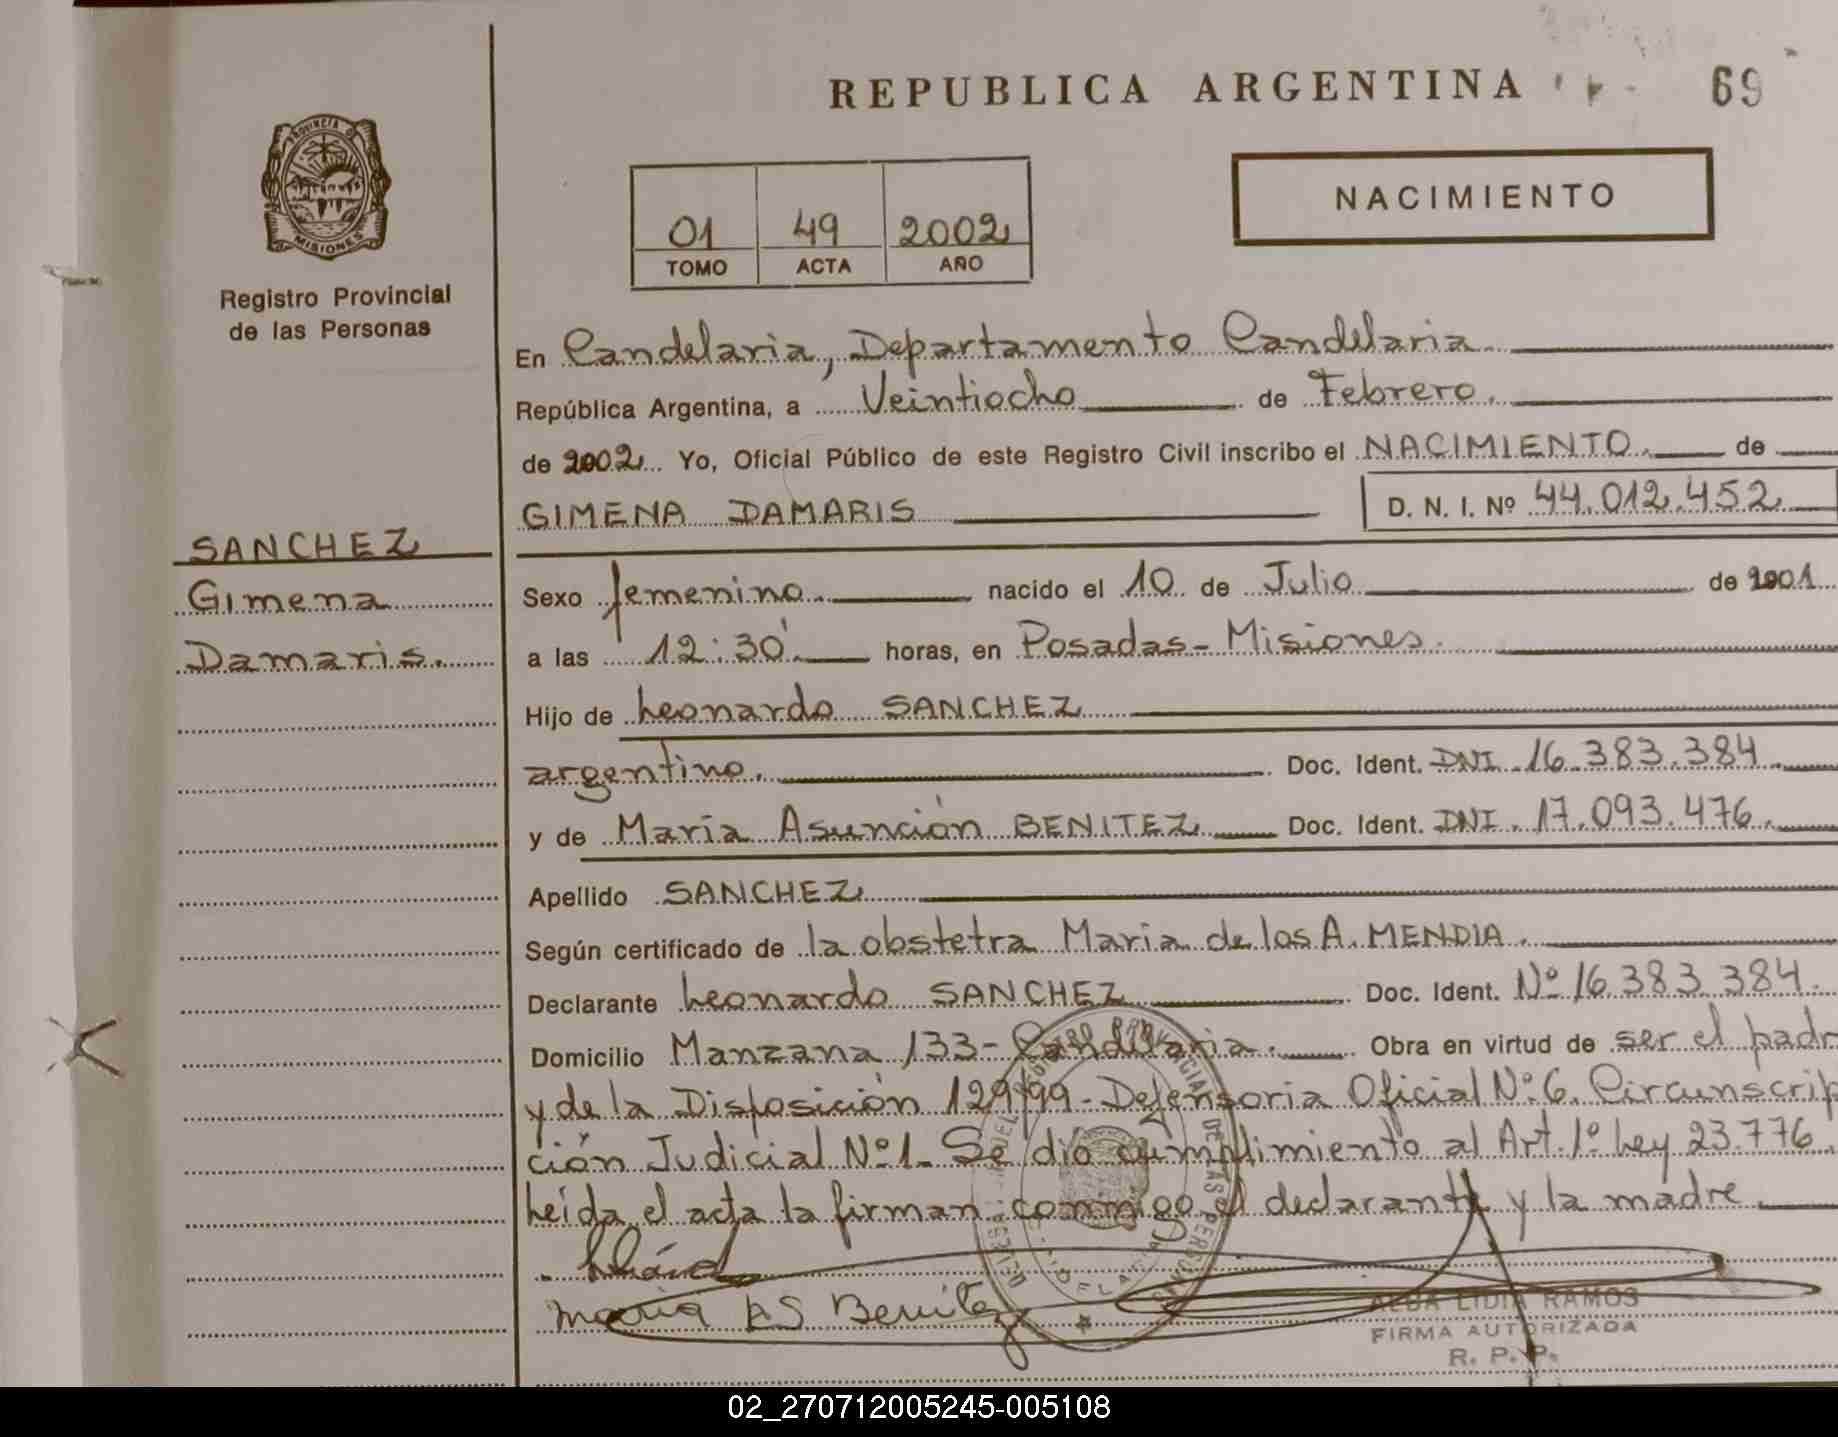 REPUBLICA ARGENTINA
69
PROVINCIA DE
MISIONES
Registro Provincial
de las Personas
01 49 2002
TOMO ACTA AÑO
NACIMIENTO
En Candelaria, Departamento Candelaria
República Argentina, a Veintiocho de Febrero.
de 2002 Yo, Oficial Público de este Registro Civil inscribo el NACIMIENTO. de
GIMENA DAMARIS D. N. I. Nº 44.012.452
SANCHEZ
Gimena
Damaris.
Sexo femenino. nacido el 10 de Julio de 2001
a las 12:30'. horas, en Posadas - Misiones.
Hijo de Leonardo SANCHEZ
argentino. Doc. Ident. DNI. 16.383.384.
y de María Asunción BENITEZ Doc. Ident. DNI. 17.093.476.
Apellido SANCHEZ
Según certificado de la obstetra María de los A. MENDIA.
Declarante Leonardo SANCHEZ Doc. Ident. Nº 16.383.384.
Domicilio Manzana 133 - Candelaria. Obra en virtud de ser el padr
y de la Disposición 129/99 - Defensoria Oficial Nº 6. Circunscrip
ción Judicial Nº 1. Se dió cumplimiento al Art. 1º Ley 23.776.
Leída el acta la firman conmigo el declarante y la madre.
Maria AS Benitez
ALBA LIDIA RAMOS
FIRMA AUTORIZADA
R. P. P.
02_270712005245-005108